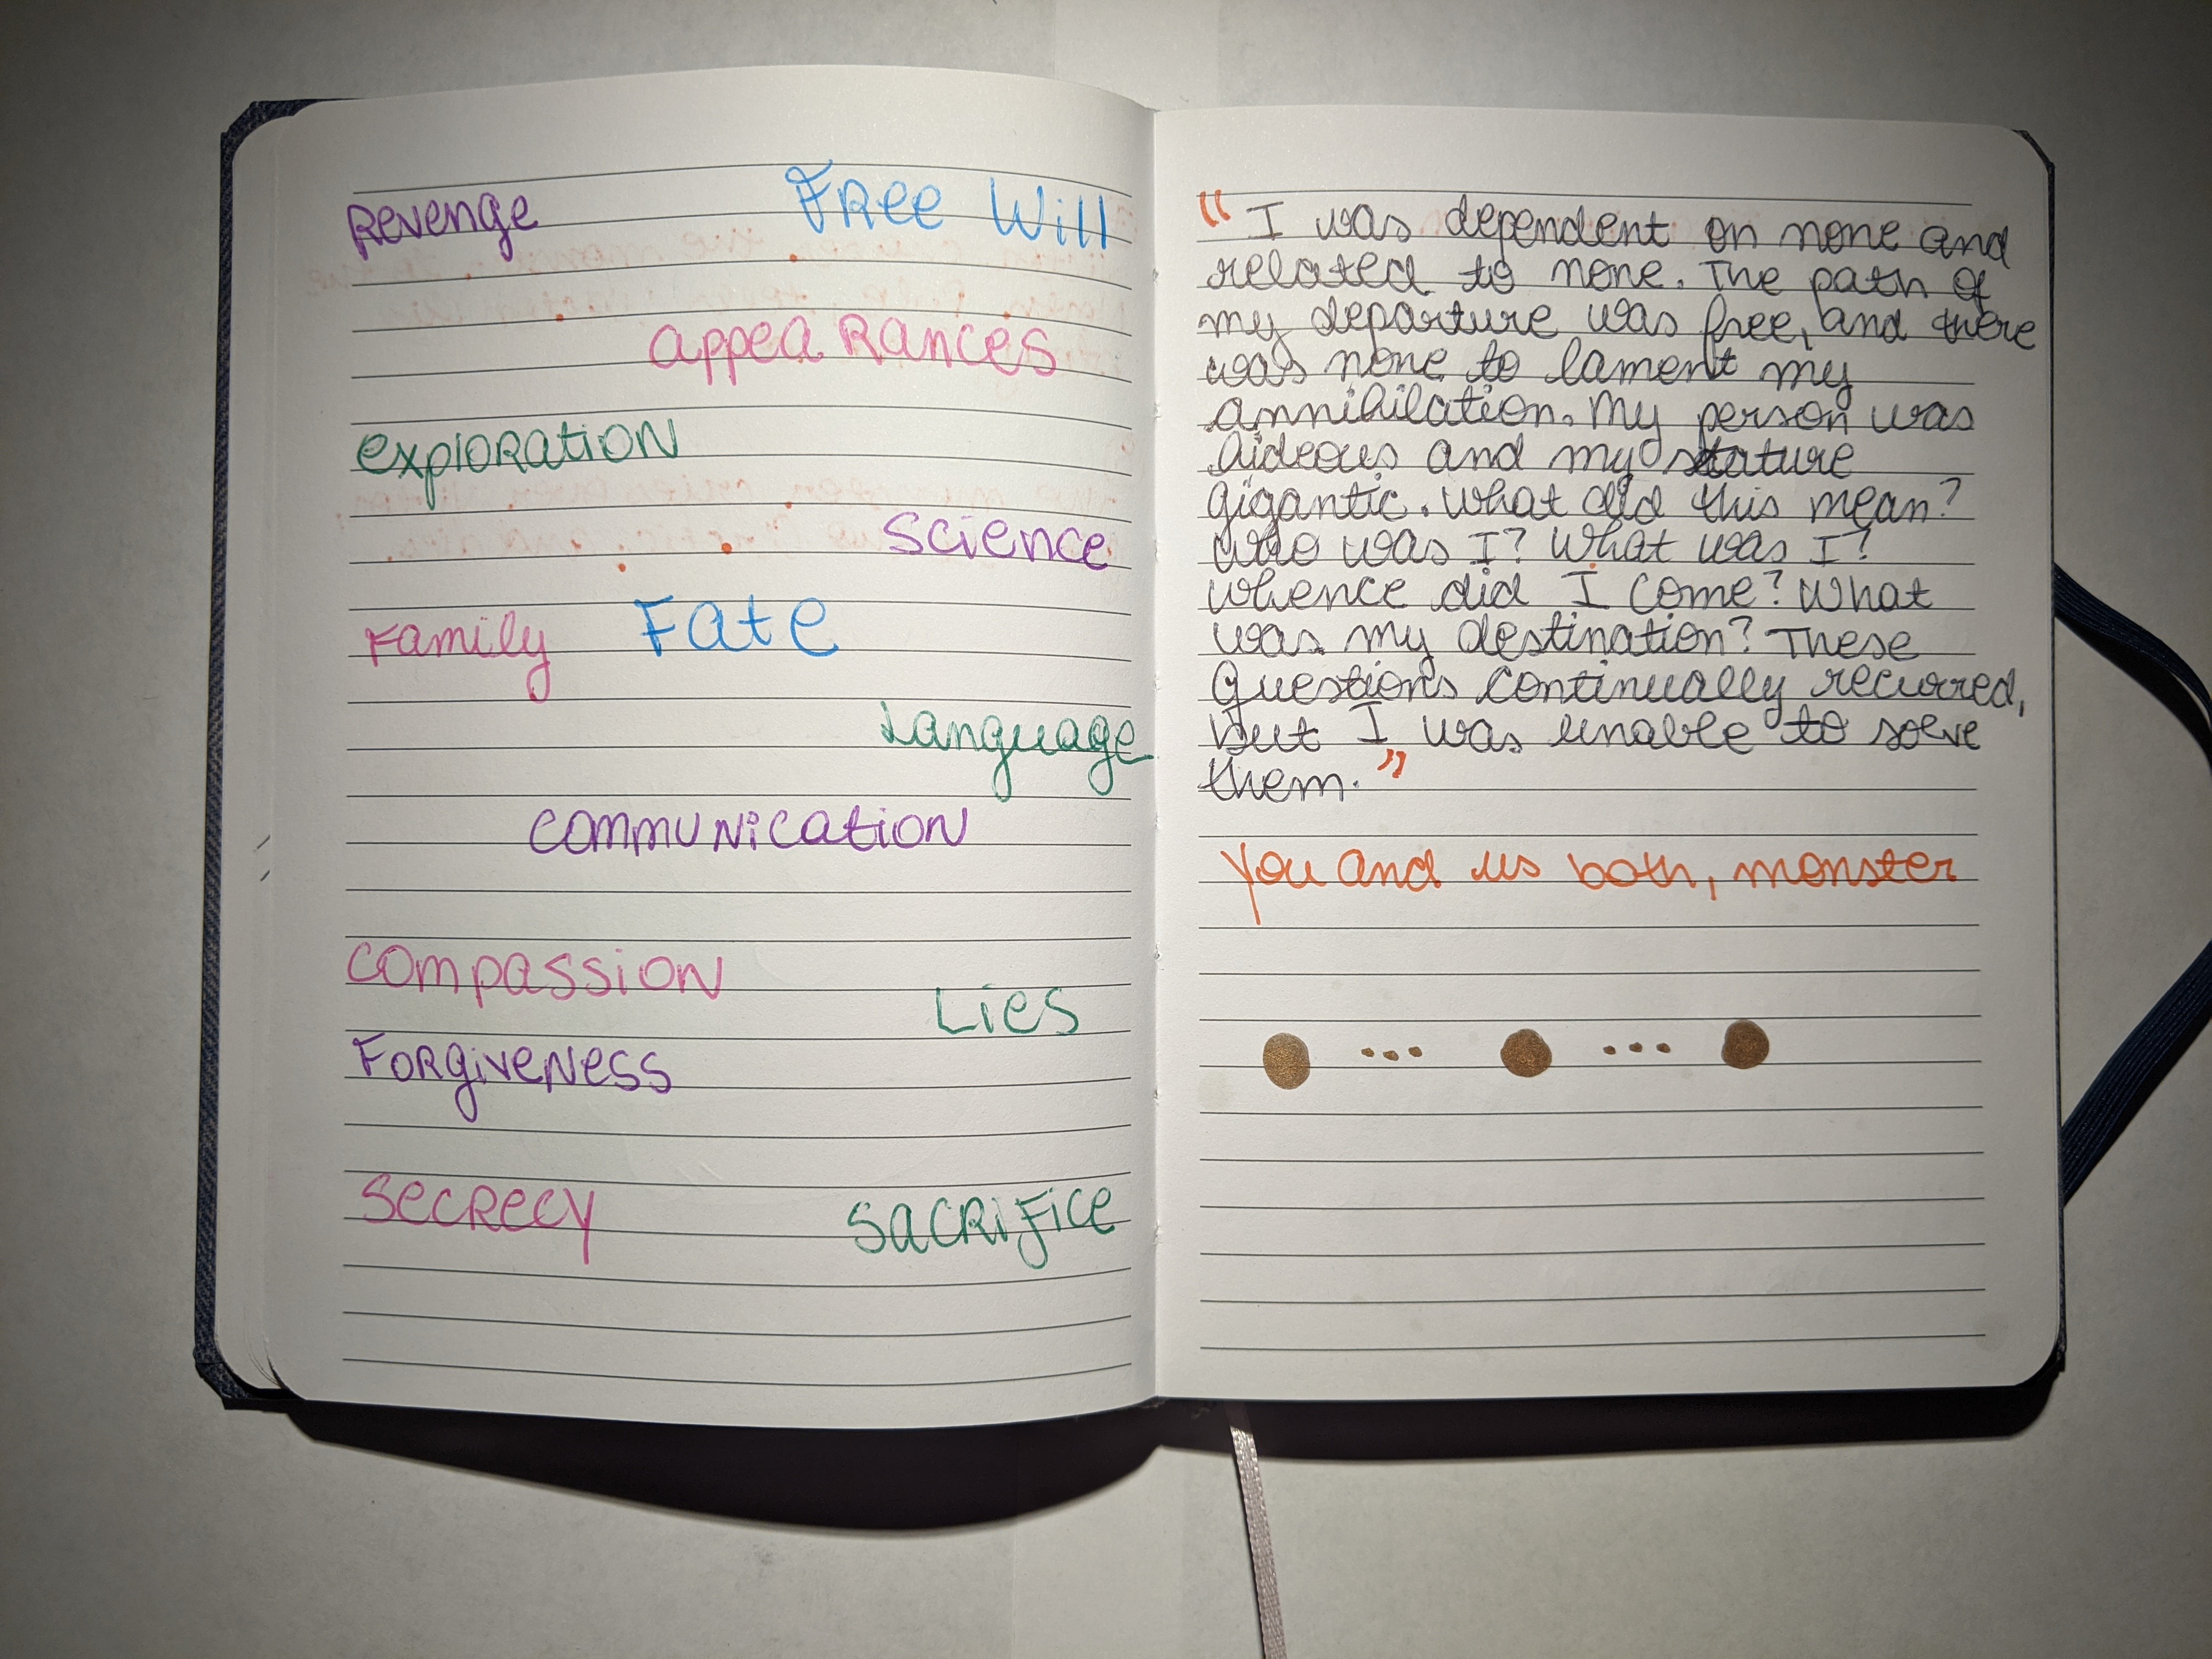 Revenge
Free Will
appearances
exploration
Science
Family
Fate
Language
communication
compassion
Lies
Forgiveness
Secrecy
Sacrifice
"I was dependent on none and
related to none. The path of
my departure was free, and there
was none to lament my
annihilation. My person was
hideous and my stature
gigantic. What did this mean?
Who was I? What was I?
Whence did I come? What
was my destination? These
questions continually recurred,
but I was unable to solve
them."
You and us both, monster